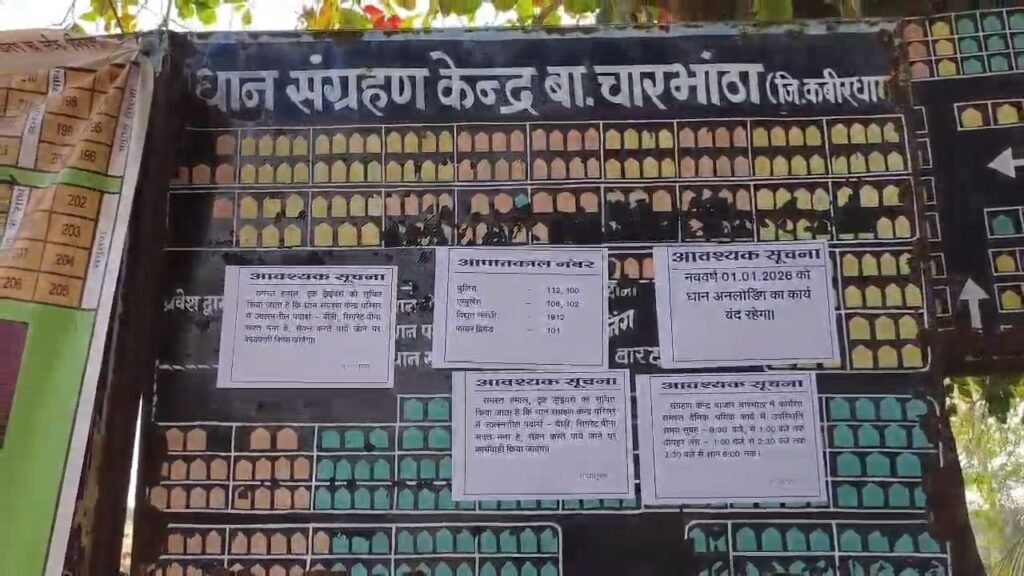 धान संग्रहण केन्द्र बा. चारभांठा (जि.कबीरधा
आवश्यक सूचना
समस्त हमाल, ट्रक ड्राईवरों को सूचित
किया जाता है कि धान संग्रहण केन्द्र परिसर
में ज्वलनशील पदार्थ - बीड़ी, सिगरेट पीना
सख्त मना है, सेवन करते पाये जाने पर
कार्यवाही किया जावेगा।
आपातकाल नंबर
पुलिस - 112, 100
एम्बुलेंस - 108, 102
विद्युत - 1912
फायर ब्रिगेड - 101
आवश्यक सूचना
नववर्ष 01.01.2026 को
धान अनलोडिंग का कार्य
बंद रहेगा।
प्रवेश द्वा
आवश्यक सूचना
समस्त हमाल, ट्रक ड्राईवरों को सूचित
किया जाता है कि धान संग्रहण केन्द्र परिसर
में ज्वलनशील पदार्थ - बीड़ी, सिगरेट पीना
सख्त मना है, सेवन करते पाये जाने पर
कार्यवाही किया जावेगा।
आवश्यक सूचना
संग्रहण केन्द्र बाजार चारभांठा में कार्यरत
समस्त दैनिक श्रमिक कार्य में उपस्थिति
समय सुबह - 8:30 बजे से 1:00 बजे
लंच - 1:00 बजे से 2:30 बजे तक
2:30 बजे से शाम 6:00 तक।
202
203
204
206 205